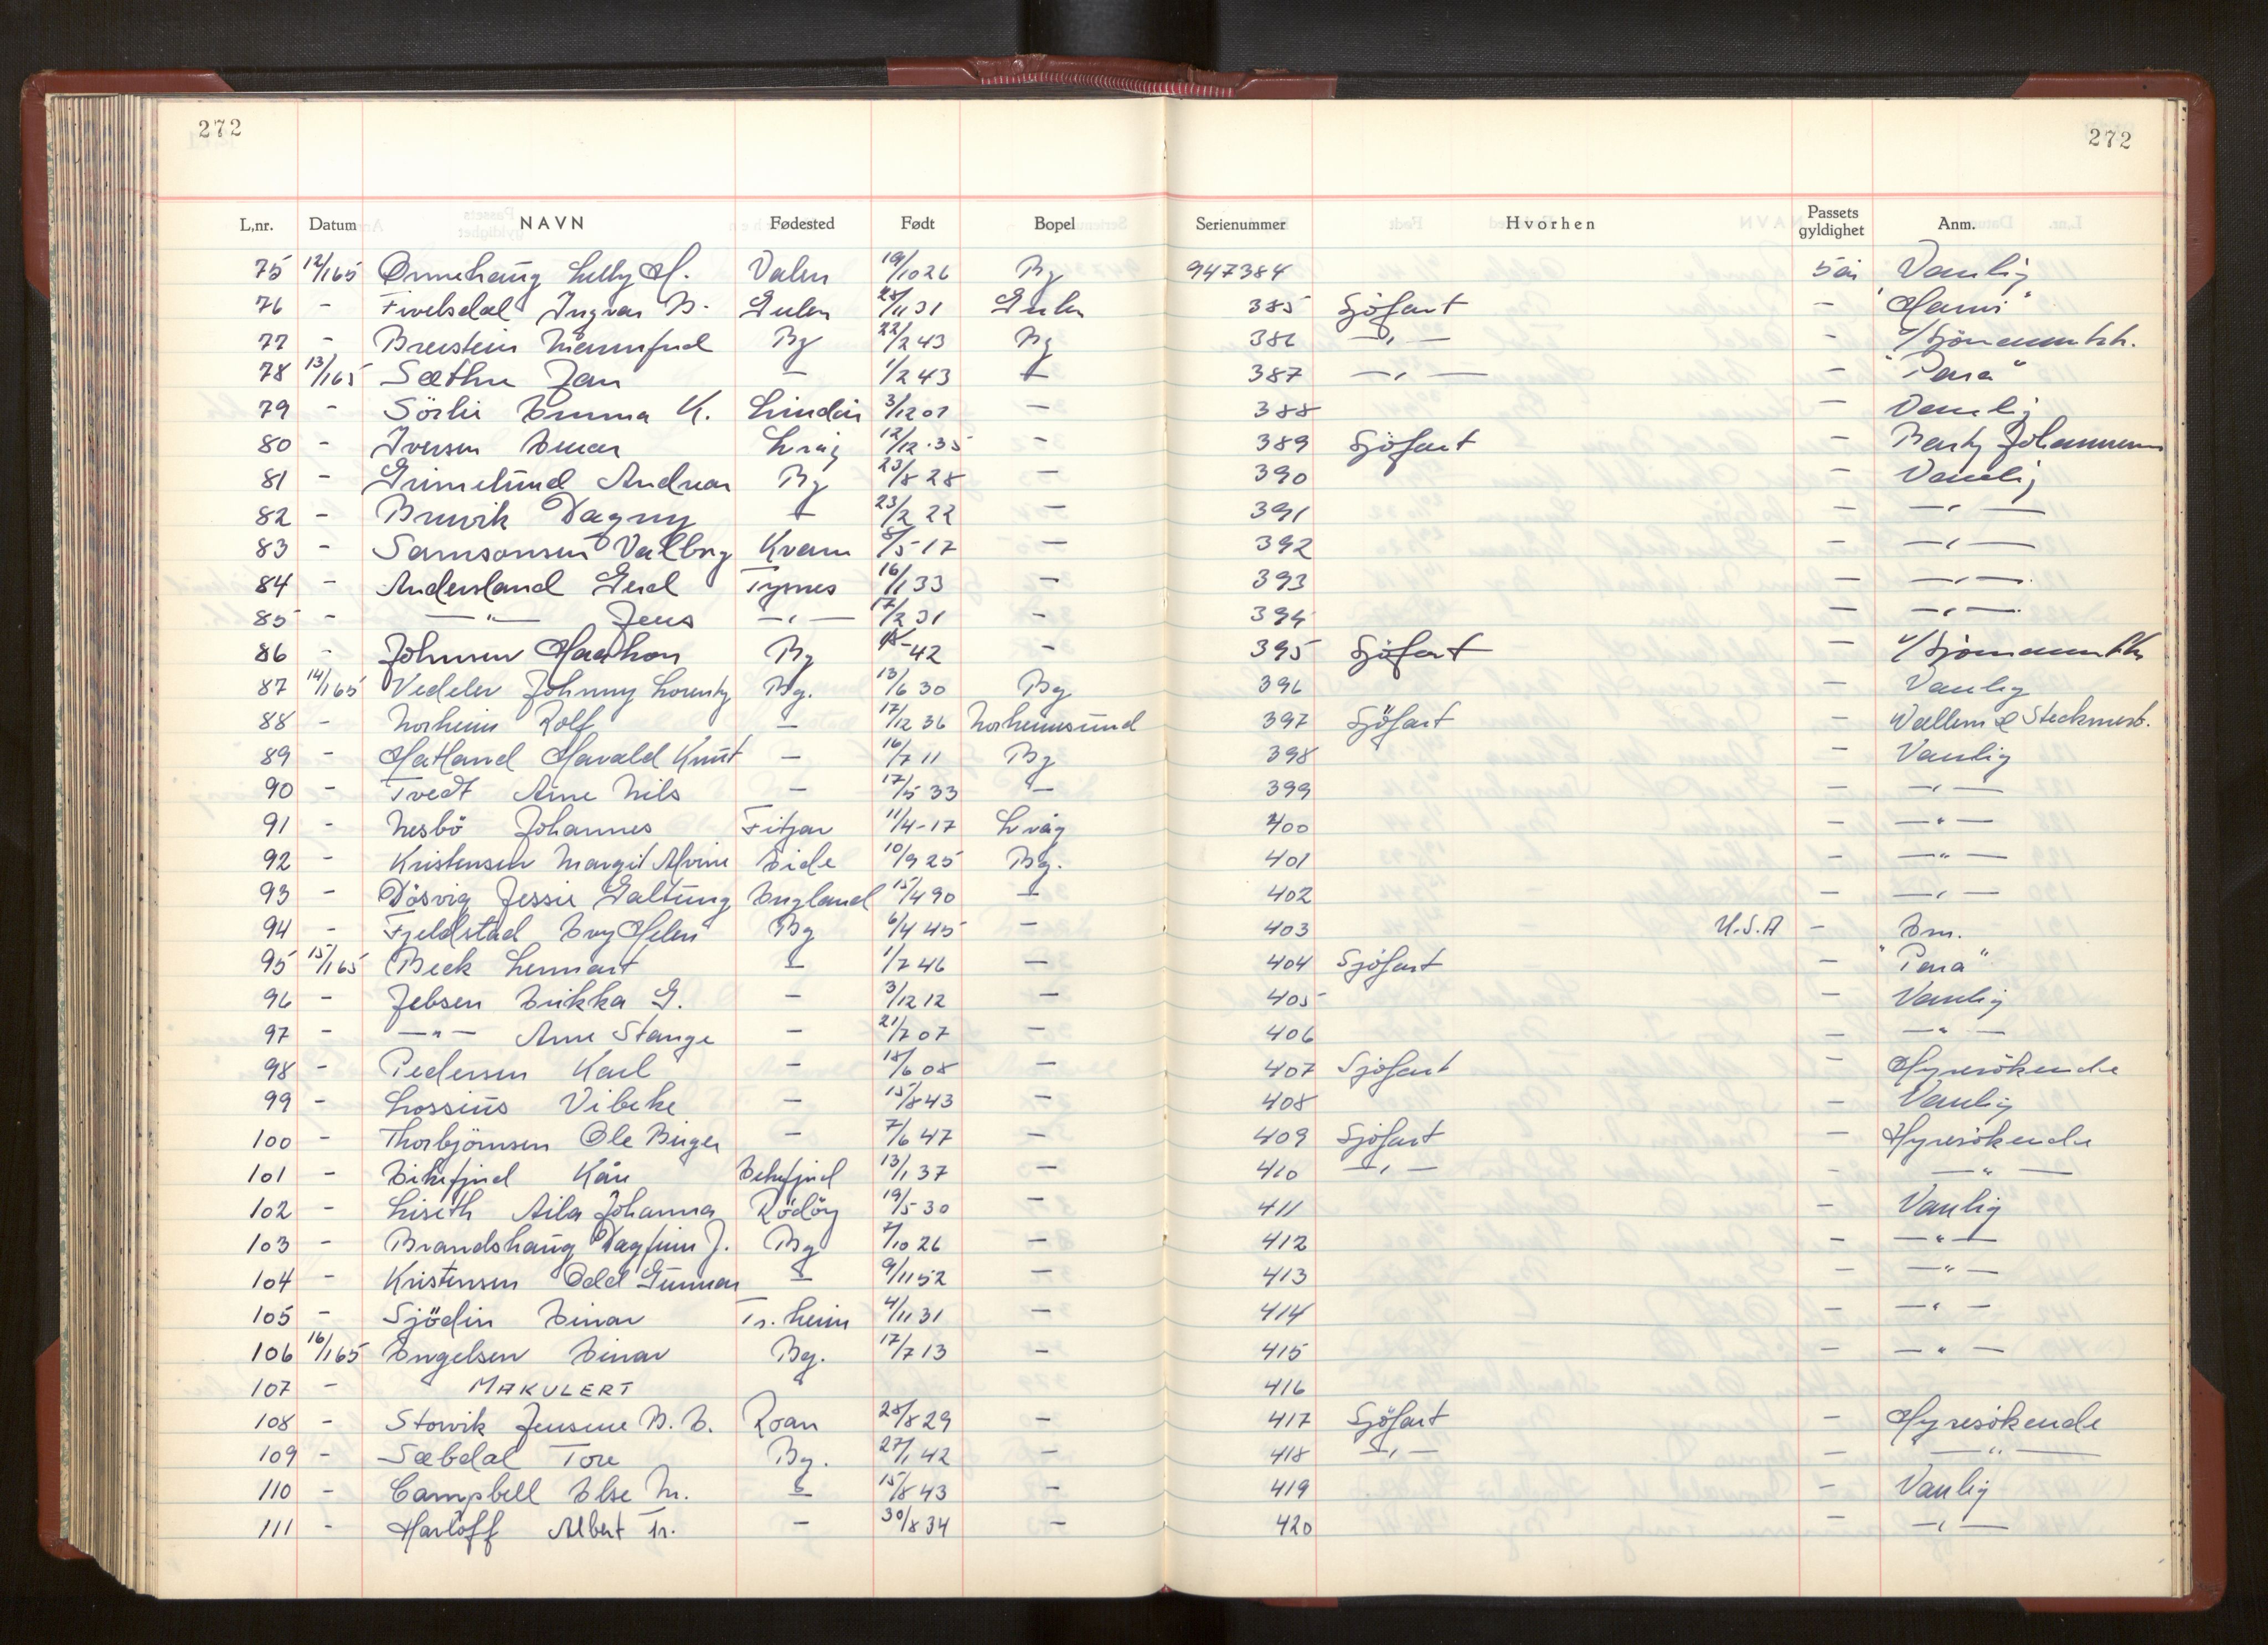 272 272
L.nr. Datum NAVN Fødested Født Bopel Serienummer Hvorhen Passets gyldighet Anm.
75 12/1 65 Ørnehaug Lilly H. Valen 19/10 26 Bg 947384 5 år Vanlig
76 - Fivelsdal Ingvar B. Gulen 28/11 31 Gulen 385 Sjöfart - "Harvi"
77 - Breistein Mannfred Bg 22/2 43 Bg 386 -"- - 
78 13/1 65 Sæthre Jan - 1/2 43 - 387 -"- - "Para"
79 - Sörlie Emma K. Lindås 3/12 07 - 388 - Vanlig
80 - Iversen Einar Lvåg 12/12.35 - 389 Sjöfart - Johannessen
81 - Grimelund Andreas Bg 23/8 28 - 390 - Vanlig
82 - Bruvik Dagny - 23/2 22 - 391 - -"-
83 - Samsonsen Valborg Kvam 8/5-17 - 392 - -"-
84 - Andersland Gerd Tysnes 16/1 33 - 393 - -"-
85 - -"- Jens -"- 17/2 31 - 394 - -"-
86 - Johnsen Haakon Bg -42 - 395 Sjöfart -
87 14/1 65 Vedeler Johnny Lorentz Bg. 13/6 30 Bg 396 - Vanlig
88 - Norheim Rolf - 17/12 36 Norheimsund 397 Sjöfart - Wallem & Steckmest.
89 - Hatland Harald Knut - 16/7 11 Bg 398 - Vanlig
90 - Tvedt Arne Nils - 17/5 33 - 399 - -"-
91 - Nesbö Johannes Fitjar 11/4-17 Lvåg 400 - -"-
92 - Kristensen Margit Alvine Eide 10/9 25 Bg. 401 - -"-
93 - Dösvig Jessie Galtung England 15/4 90 - 402 - -"-
94 - Fjeldstad Evy Helen Bg 6/4 45 - 403 U.S.A - Em.
95 15/1 65 Beck Lennart - 1/7 46 - 404 Sjöfart - "Para"
96 - Jebsen Erikka G. - 3/12 12 - 405 - Vanlig
97 - -"- Arne Stange - 21/7 07 - 406 - -"-
98 - Pedersen Karl - 18/6 08 - 407 Sjöfart - Hyresökende
99 - Lossius Vibeke - 15/8 43 - 408 - Vanlig
100 - Thorbjörnsen Ole Birger - 7/6 47 - 409 Sjöfart - Hyresökende
101 - Eikefjord Kåre Eikefjord 13/1 37 - 410 -"- - -"-
102 - Liseth Aila Johanna Rödöy 19/5-30 - 411 - Vanlig
103 - Brandshaug Dagfinn J. Bg 7/10 26 - 412 - -"-
104 - Kristensen Odd Gunnar - 9/11 52 - 413 - -"-
105 - Sjödin Einar Tr.heim 4/11 31 - 414 - -"-
106 16/1 65 Engelsen Einar Bg. 17/7 13 - 415 - -"-
107 - MAKULERT 416
108 - Storvik Jensine B. E. Roan 28/8 29 - 417 Sjöfart - Hyresökende
109 - Sæbdal Tore Bg. 27/1 42 - 418 -"- - -"-
110 - Campbell Else M. - 15/8 43 - 419 - Vanlig
111 - Harloff Albert Fr. - 30/8 34 - 420 - -"-